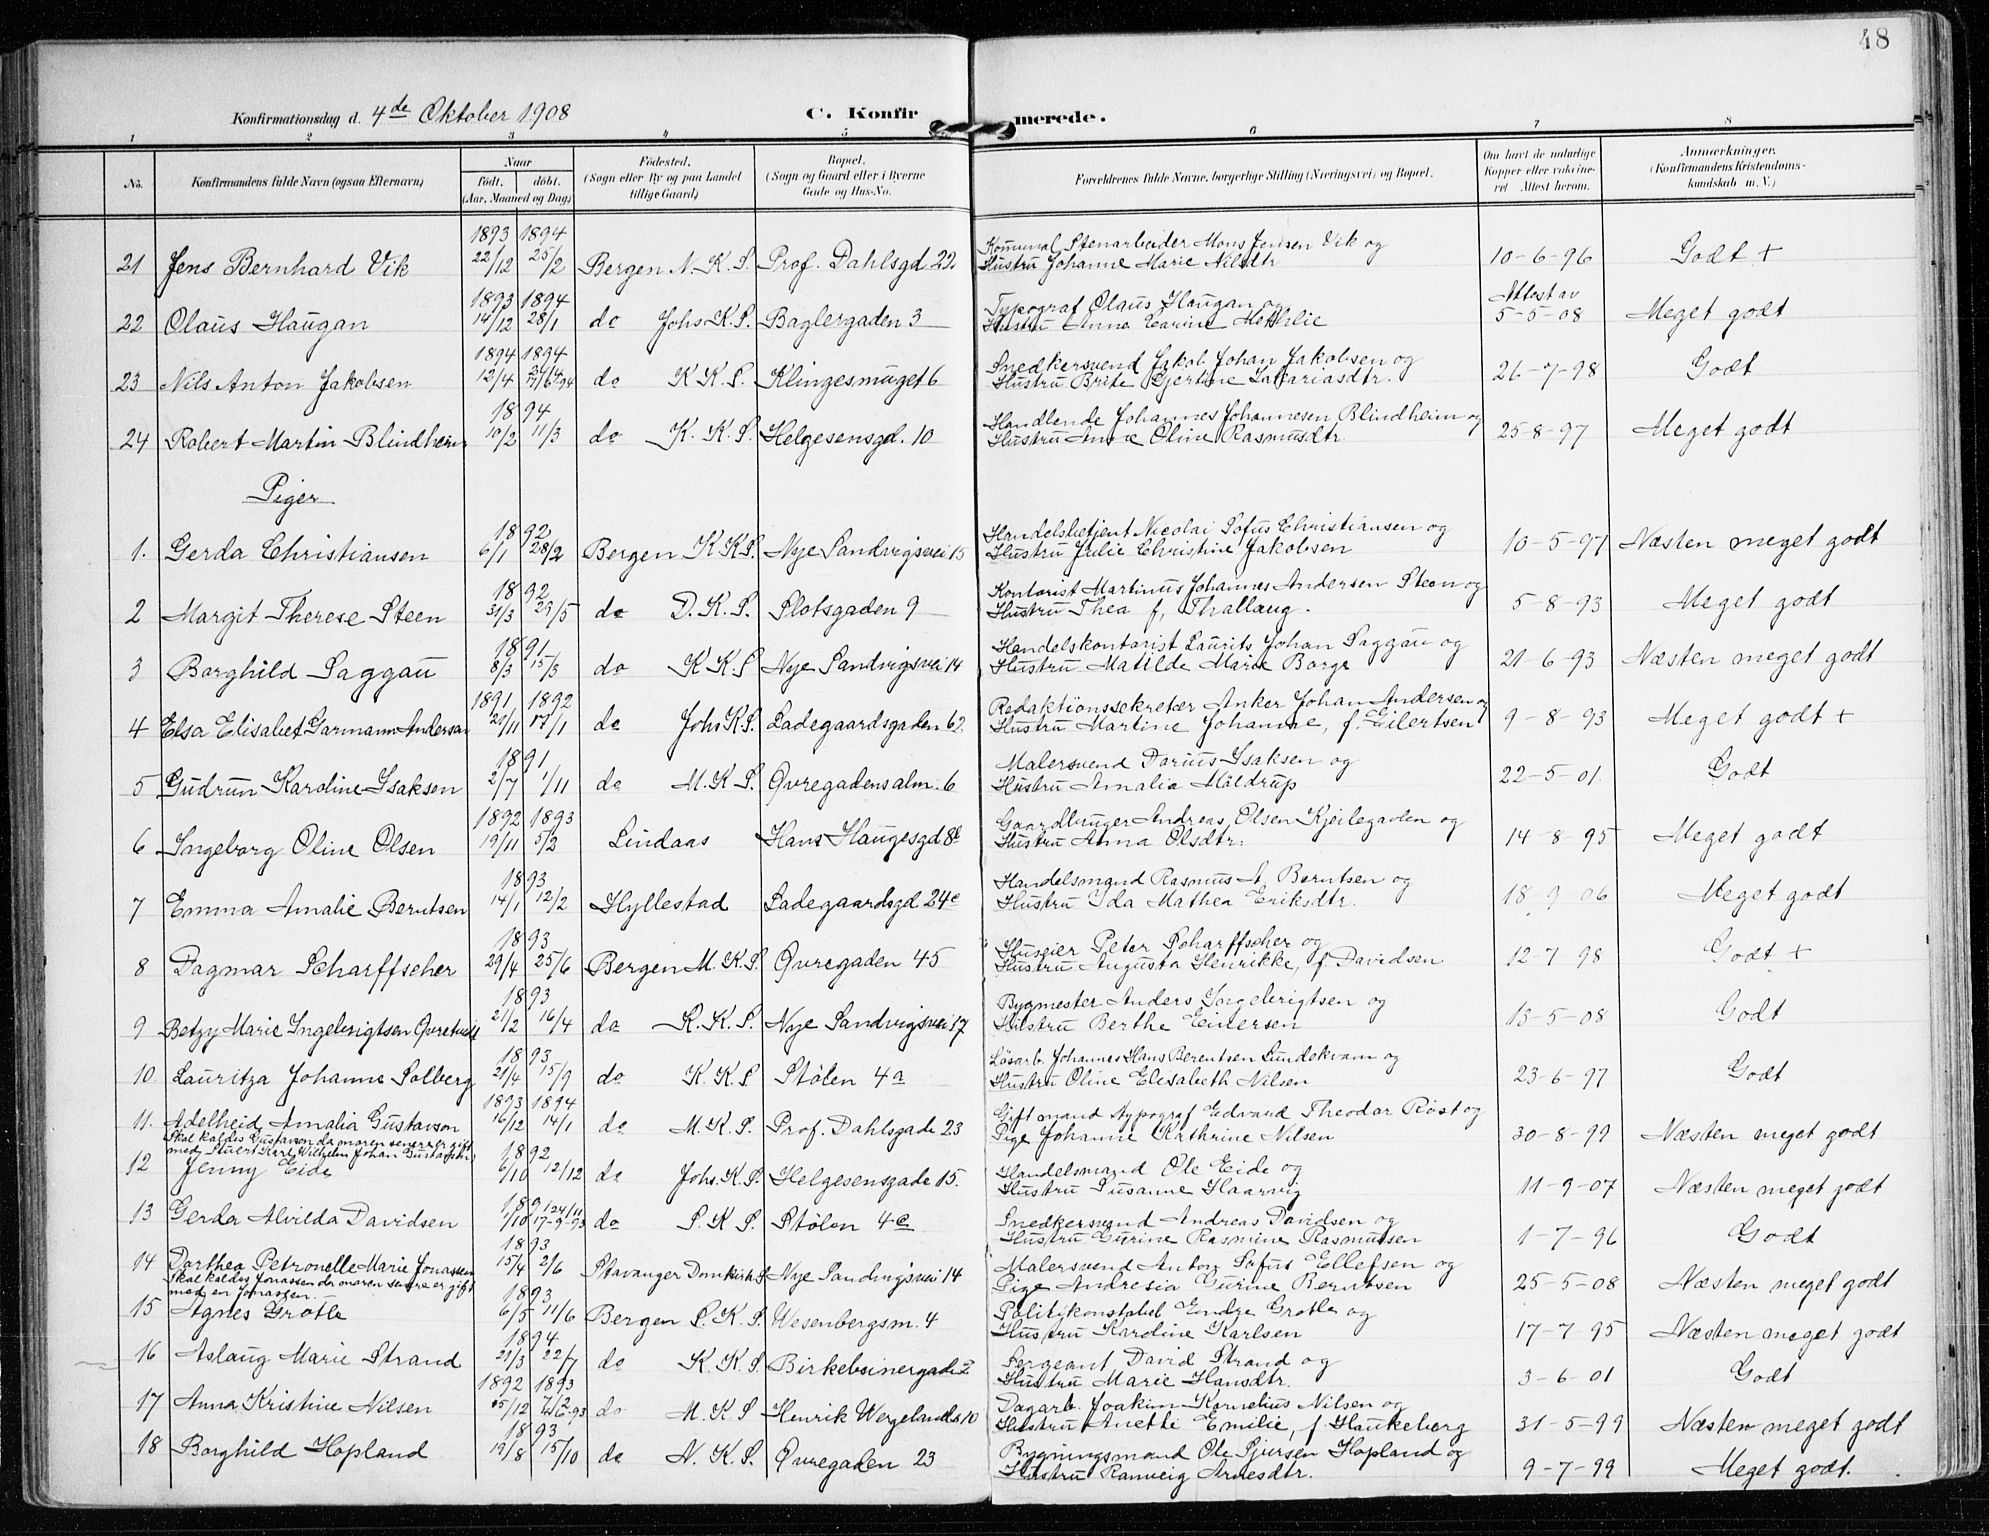 48
Konfirmationsdag d. 4de Oktober 1908 C. Konfirmerede.
1 2 3 4 5 6 7 8
No. Konfirmandens fulde Navn (ogsaa Efternavn) Naar født. døbt. (Aar, Maaned og Dag) Fødested. (Sogn eller By og paa Landet tillige Gaard) Bopæl. (Sogn og Gaard eller i Byerne Gade og Hus-No. Forældrenes fulde Navne, borgerlige Stilling (Næringsvei) og Bopæl. Om havt de naturlige Kopper eller vaccineret Attest herom. Anmærkninger. (Konfirmandens Kristendomskundskab m. V.)
1893 1894 Komunal Stenarbeider Mons Jensen Vik og
21 Jens Bernhard Vik 22/12 25/2 Bergen N. K. S. Prof. Dahlsgd 22. Hustru Johanne Marie Nilsdtr 10-6-96 Godt +
1893 1894 Typograf Olaus Haugan og Attest av
22 Olaus Haugan 14/12 28/1 do Johs K. S. Baglergaden 3 Hustru Anna 5-5-08 Meget godt
1894 1894 Snedkersvend Jakob Johan Jakobsen og
23 Nils Anton Jakobsen 12/4 do K K. S. Klingesmuget 6 Hustru Brite Gjertine Sakariasdtr. 26-7-98 Godt
1894 Handlende Johannes Johannesen Blindheim og
24 Robert Martin Blindheim 10/2 11/3 do K. K. S. Helgesensgd. 10 Hustru Anne Oline Rasmusdtr. 25-8-97 Meget godt
Piger
1892 Handelsbetjent Nicolai Sofus Christiansen og
1. Gerda Christiansen 6/1 28/2 Bergen K K S. Nye Sandvigsvei 15 Hustru Julie Christine Jakobsen 10-5-97 Næsten meget godt
1892 Kontorist Martinus Johannes Andersen Steen og
2 Margit Therese Steen 31/3 29/5 do D. K. S. Slotsgaden 9 Hustru Thea f, Thallaug. 5-8-93 Meget godt
1891 Handelskontorist Laurits Johan Saggau og
3 Borghild Saggau 8/3 15/3 do K K. S Nye Sandvigsvei 14 Hustru Matilde Marie Borge 21-6-93 Næsten meget godt
1891 1892 Redaktionssekretær Anker Johan Andersen og
4 Elsa Elisabet Garmann Andersen 20/11 17/1 do Johs K S. Ladegaardsgaden 62. Hustru Martine Johanne, f. Eilertsen 9-8-93 Meget godt +
1891 Malersvend Darius Isaksen og
5 Gudrun Karoline Isaksen 2/7 1/11 do M. K. S. Øvregadens alm. 6 Hustru Amalia Møldrup 22-5-01. Godt
1892 1893 Gaardbruger Andreas Olsen Kjeilegavlen og
6 Ingeborg Oline Olsen 19/11 5/2 Lindaas Hans Haugesgd 8 Hustru Anna Olsdtr. 14-8-95 Meget godt
1893 Handelsmand Rasmus A. Berntsen og
7 Emma Amalie Berntsen 14/1 12/2 Hyllestad Ladegaardsgd 24c Hustru Ida Mathea Eriksdtr. 18-9-06 Meget godt
1893 Huseier Peter Scharffscher og
8 Dagmar Scharffscher 29/4 25/6 Bergen M. K. S. Øvregaden 45 Hustru Augusta Henrikke, f. Davidsen 12-7-98 Godt +
1893 Bygmester Anders Ingebrigtsen og
9 Betzy Marie Ingebrigtsen Øvretveit 21/2 16/4 do K. K. S. Nye Sandvigsvei 17 Hustru Berthe Einersen 13-5-08 Godt
1893 Løsarb. Johannes Hans Berentsen Lundekvam og
10. Lauritza Johanne Solberg 21/4 15/9 do K. K. S Stølen 4a Hustru Oline Elisabeth Nilsen 23-6-97 Godt
1893 1894 Gift mand Typograf Edvard Theodor Røst og
11. Adelheid Amalia Gustavson 16/12 14/1 do M. K. S. Prof. Dahlsgade 23 Pige Johanne Kathrine Nilsen 30-8-99 Næsten meget godt
Skal kaldes Gustavson da moren senere er gift
med Stuert Karl Wilhelm Johan Gustavson
1892 Handelsmand Ole Eide og
12 Jenny Eide 6/10 12/12 do Johs. K. S. Helgesensgade 15. Hustru Susanne Haarvig 11-9-07 Næsten meget godt
1891 24/11 Snedkersvend Andreas Davidsen og
13 Gerda Alvilda Davidsen 1/10 17-9-93 do S. K. S. Stølen 4c Hustru Gurine Rasmine Rasmussen 1-7-96 Godt
1893 Malersvend Anton Sofus Ellefsen og
14 Dorthea Petronelle Marie Jonassen 15/4 2/6 Stavanger Domkirke S Nye Sandvigsvei 14 Pige Andresia Gurine Berntsen 25-5-08 Næsten meget godt
Skal kaldes Jonassen da moren senere er gift
med en Jonassen.
1893 Politikonstabel Endre Grotle og
15 Agnes Grotle 6/5 11/6 Bergen S. K. S. Wesenbergsm. 4 Hustru Karoline Karlsen 17-7-95 Næsten meget godt
1894 Sergeant David Strand og
16 Aslaug Marie Strand 21/3 22/7 do K K. S Birkebeinergade 2 Hustru Marie Hansdtr. 3-6-01 Godt
1892 1893 Dagarb. Joakim Kornelius Nilsen og
17 Anna Kristine Nilsen 15/12 do M. K S Henrik Wergelands 10 Hustru Anette Emilie, f Haukeberg 31-5-99 Næsten meget godt
1893 Bygningsmand Ole Sjursen Hopland og
18 Borghild Hopland 19/8 15/10 do N. K. S. Øvregaden 23 Hustru Ranveig Arnesdtr. 9-7-99 Meget godt.